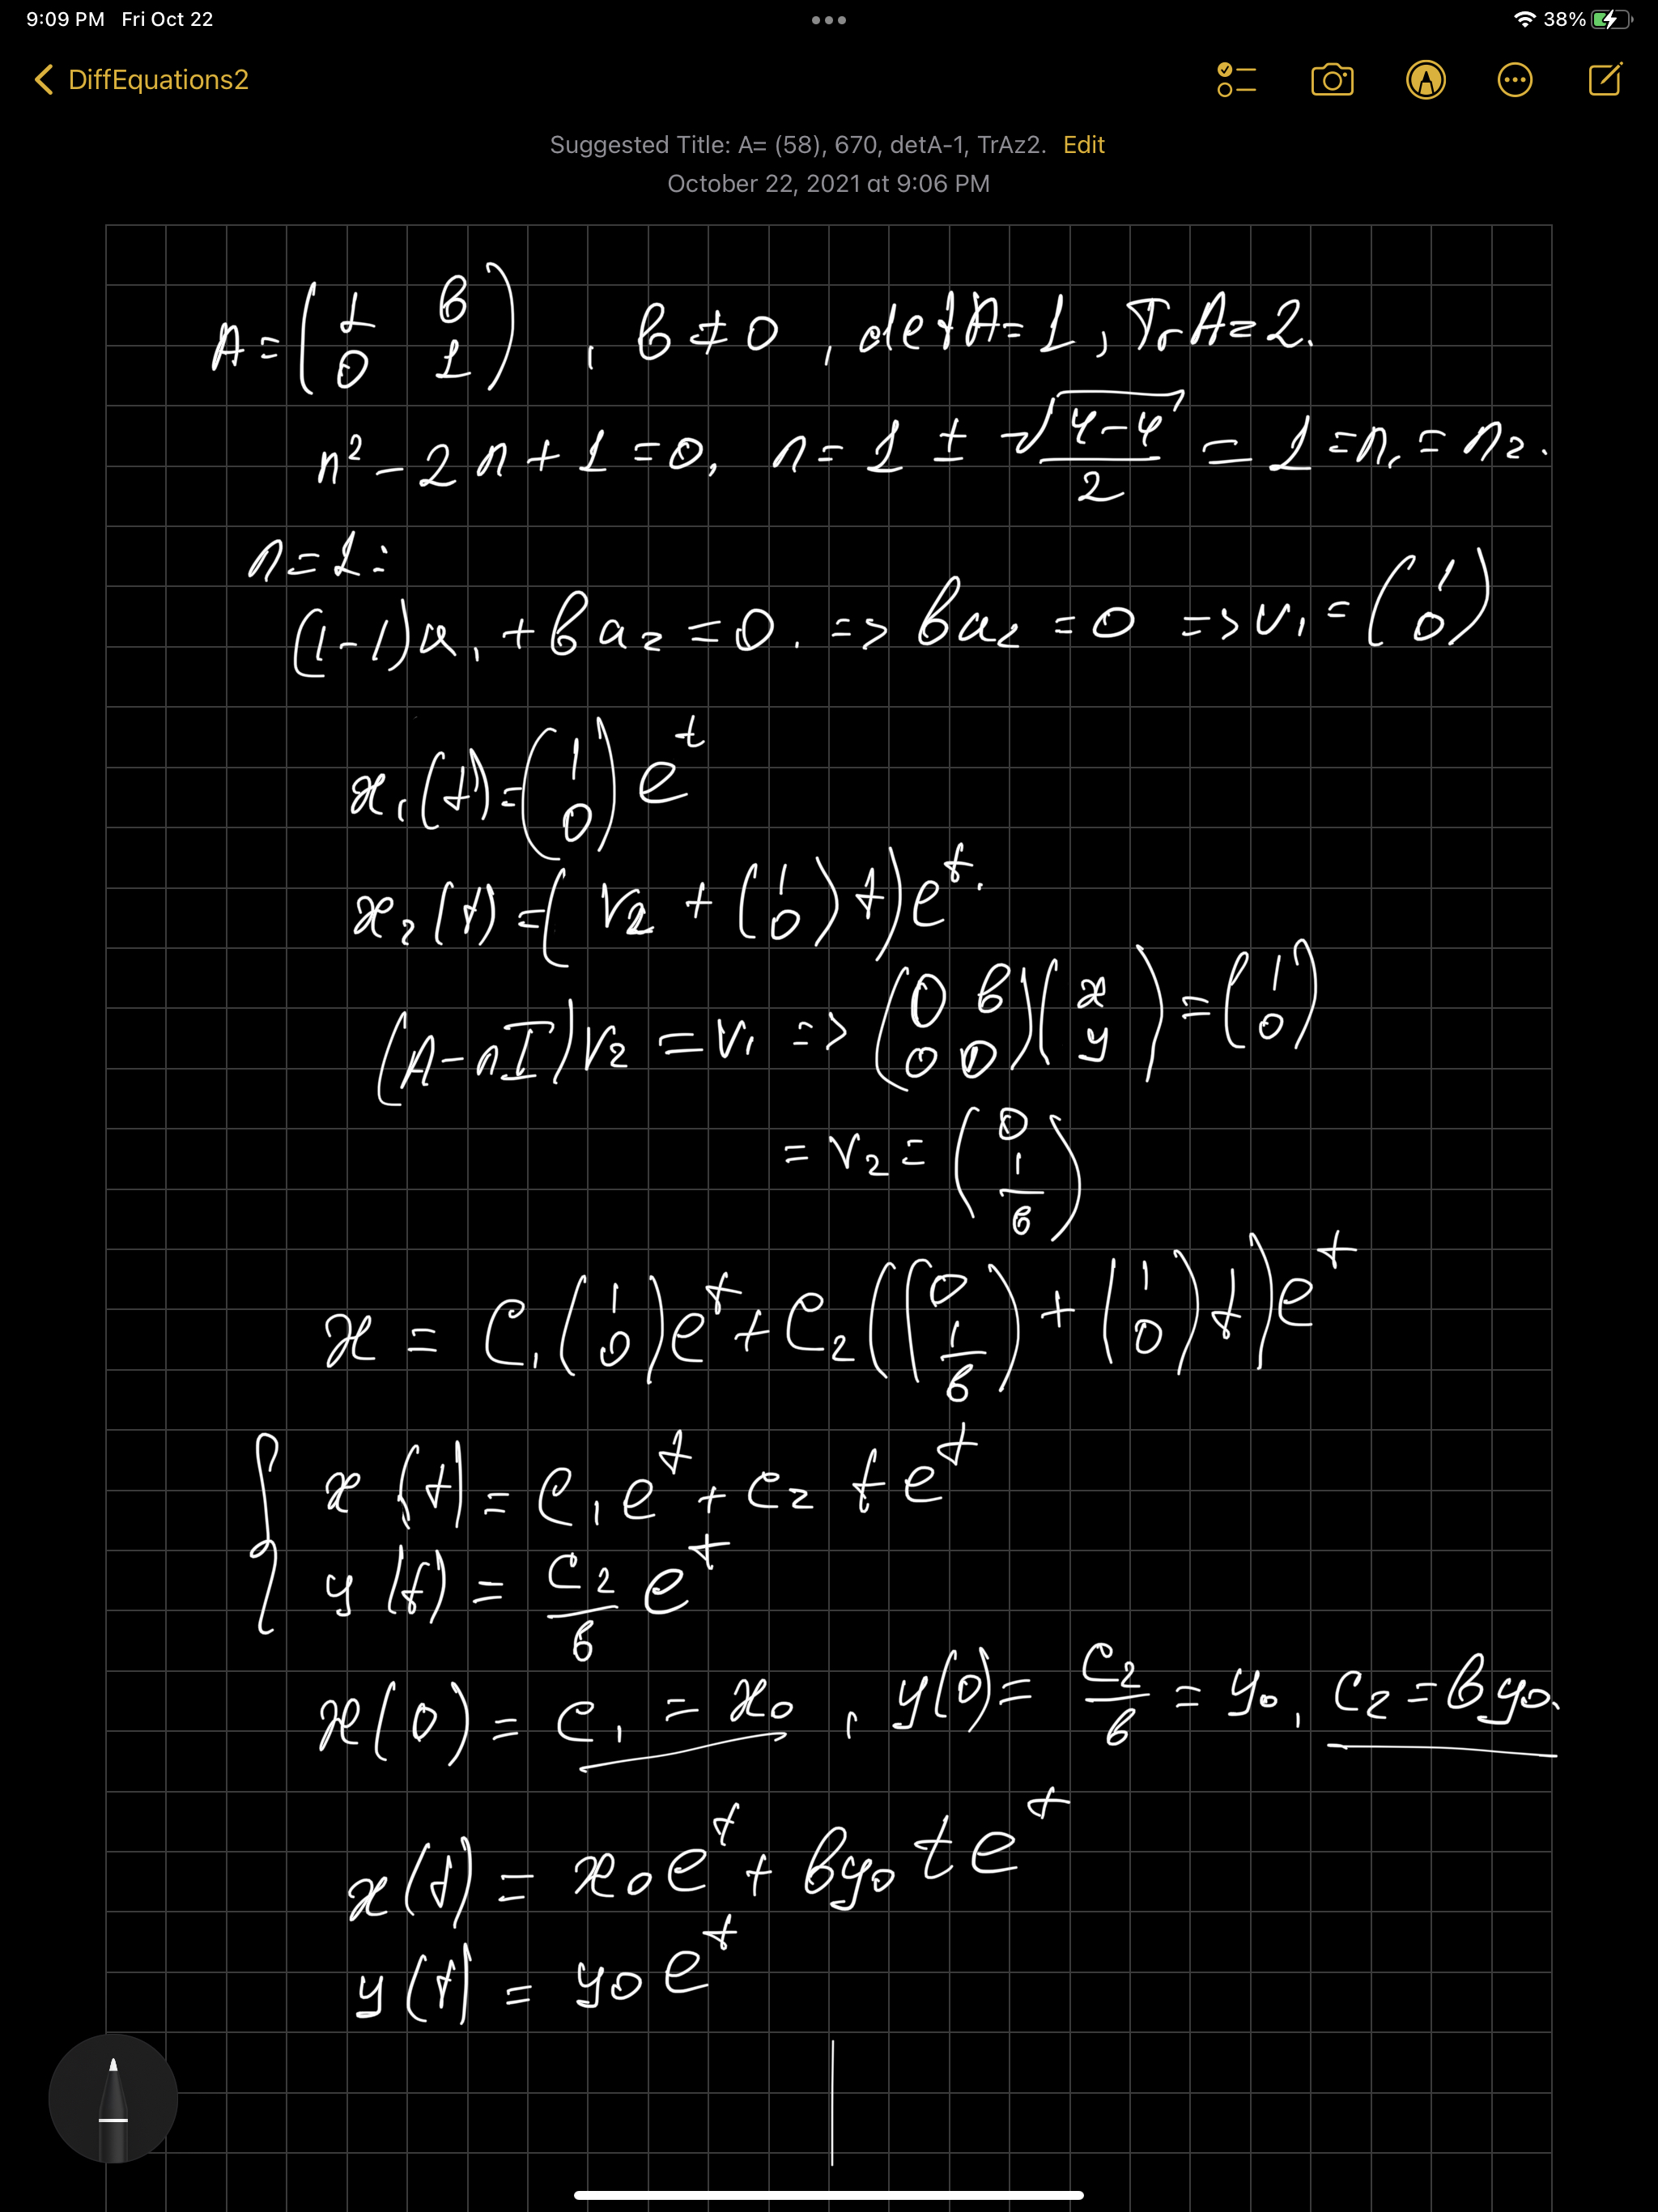 9:09 PM Fri Oct 22
38%
DiffEquations2
Suggested Title: A= (58), 670, detA-1, TrAz2. Edit
October 22, 2021 at 9:06 PM
A = (1 b; 0 1), b ≠ 0, det A = 1, Tr A = 2.
n² - 2n + 1 = 0, n = 1 ± √(4-4)/2 = 1 = n₁ = n₂.
n = 1:
(1-1)a₁ + ba₂ = 0. => ba₂ = 0 => v₁ = (1; 0)
x₁(t) = (1; 0) e^t
x₂(t) = (v₂ + (1; 0) t) e^t.
(A - nI)v₂ = v₁ => (0 b; 0 0)(x; y) = (1; 0)
= v₂ = (0; 1/b)
x = C₁(1; 0)e^t + C₂((0; 1/b) + (1; 0)t)e^t
{ x(t) = C₁e^t + C₂ t e^t
y(t) = C₂/b e^t
x(0) = C₁ = x₀, y(0) = C₂/b = y₀, C₂ = by₀.
x(t) = x₀e^t + by₀ t e^t
y(t) = y₀ e^t